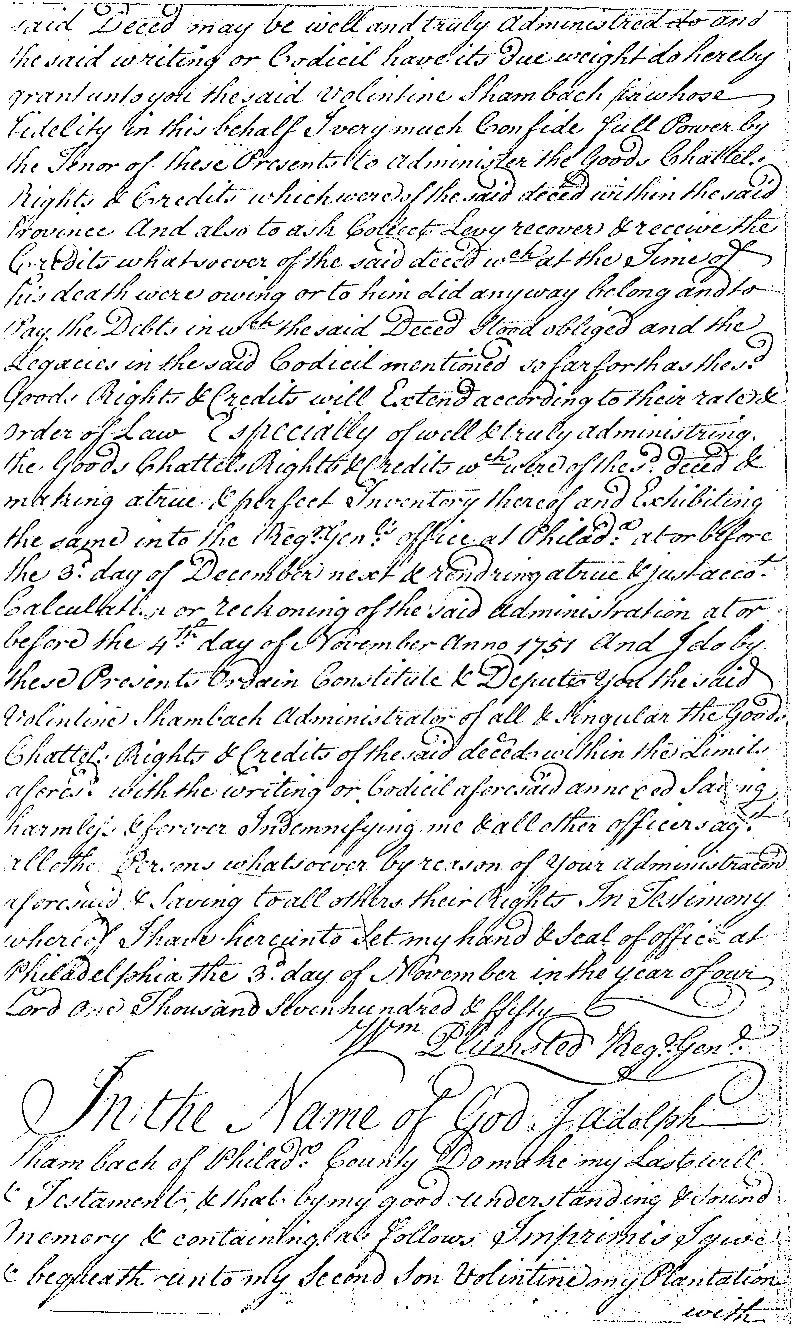 said Deced may be well and truly Administred to and
the said writing or Codicil have its due weight do hereby
grant unto you the said Volintine Shambach in whose
fidelity in this behalf I very much Confide full Power by
the Tenor of these Presents to Administer the Goods Chattels
Rights & Credits which were of the said deced within the said
Province And also to ask Collect Levy recover & receive the
Credits whatsoever of the said deced wch at the Time of
his death were owing or to him did any way belong and to
Pay the Debts in wch the said Deced Stood obliged and the
Legacies in the said Codicil mentioned so far forth as the sd
Goods Rights & Credits will Extend according to their rate &
order of Law Especially of well & truly administring
the Goods Chattels Rights & Credits wch were of the sd deced &
making a true & perfect Inventory thereof and Exhibiting
the same into the Regr Genls office at Philada at or before
the 3d day of December next & rendring a true & just accot
Calculation or reckoning of the said Administration at or
before the 4th day of November Anno 1751 And I do by
these Presents Ordain Constitute & Depute You the said
Volintine Shambach Administrator of all & Singular the Goods
Chattels Rights & Credits of the said deced within the Limits
aforesd with the writing or Codicil aforesaid annexed Saving
harmless & forever Indemnifying me & all other officers agst
all othe Persons whatsoever by reason of Your Administracon
aforesaid & Saving to all others their Rights In Testimony
whereof I have hereunto Set my hand & Seal of office at
Philadelphia the 3d day of November in the year of our
Lord one Thousand seven hundred & fifty
Wm Plumsted Regr Genl
In the Name of God I Adolph
Shambach of Philada County Do make my Last will
& Testament & that by my good understanding & Sound
Memory & containing as follows Imprimis I give
& beqeath unto my Second Son Volintine my Plantation
with